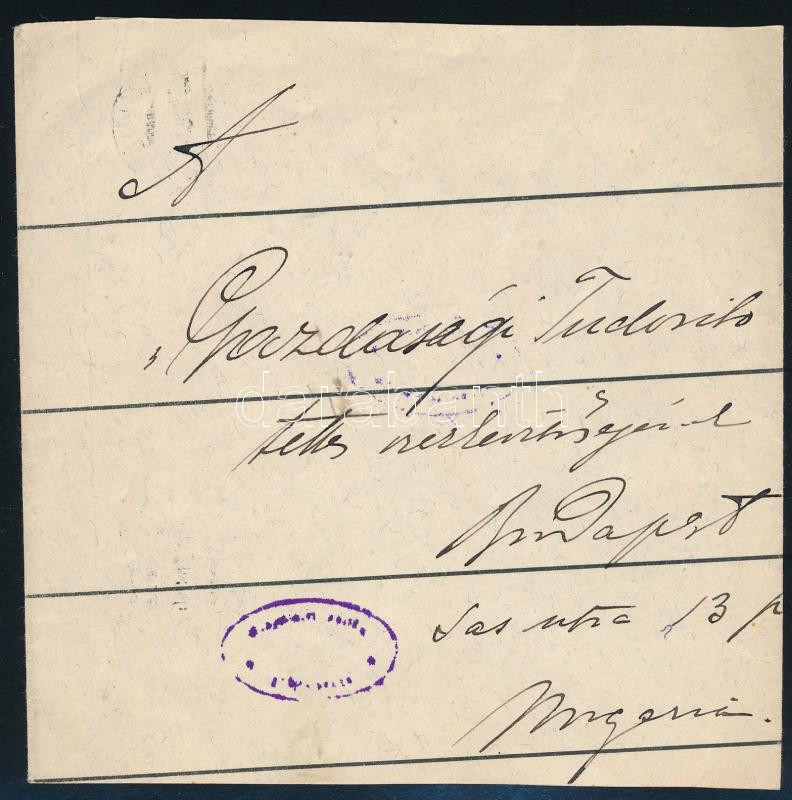 A
„Gazdasági Tudósító
tettes szerkesztőségének
Budapest
Sas utca 13
Ungaria.
darabanth